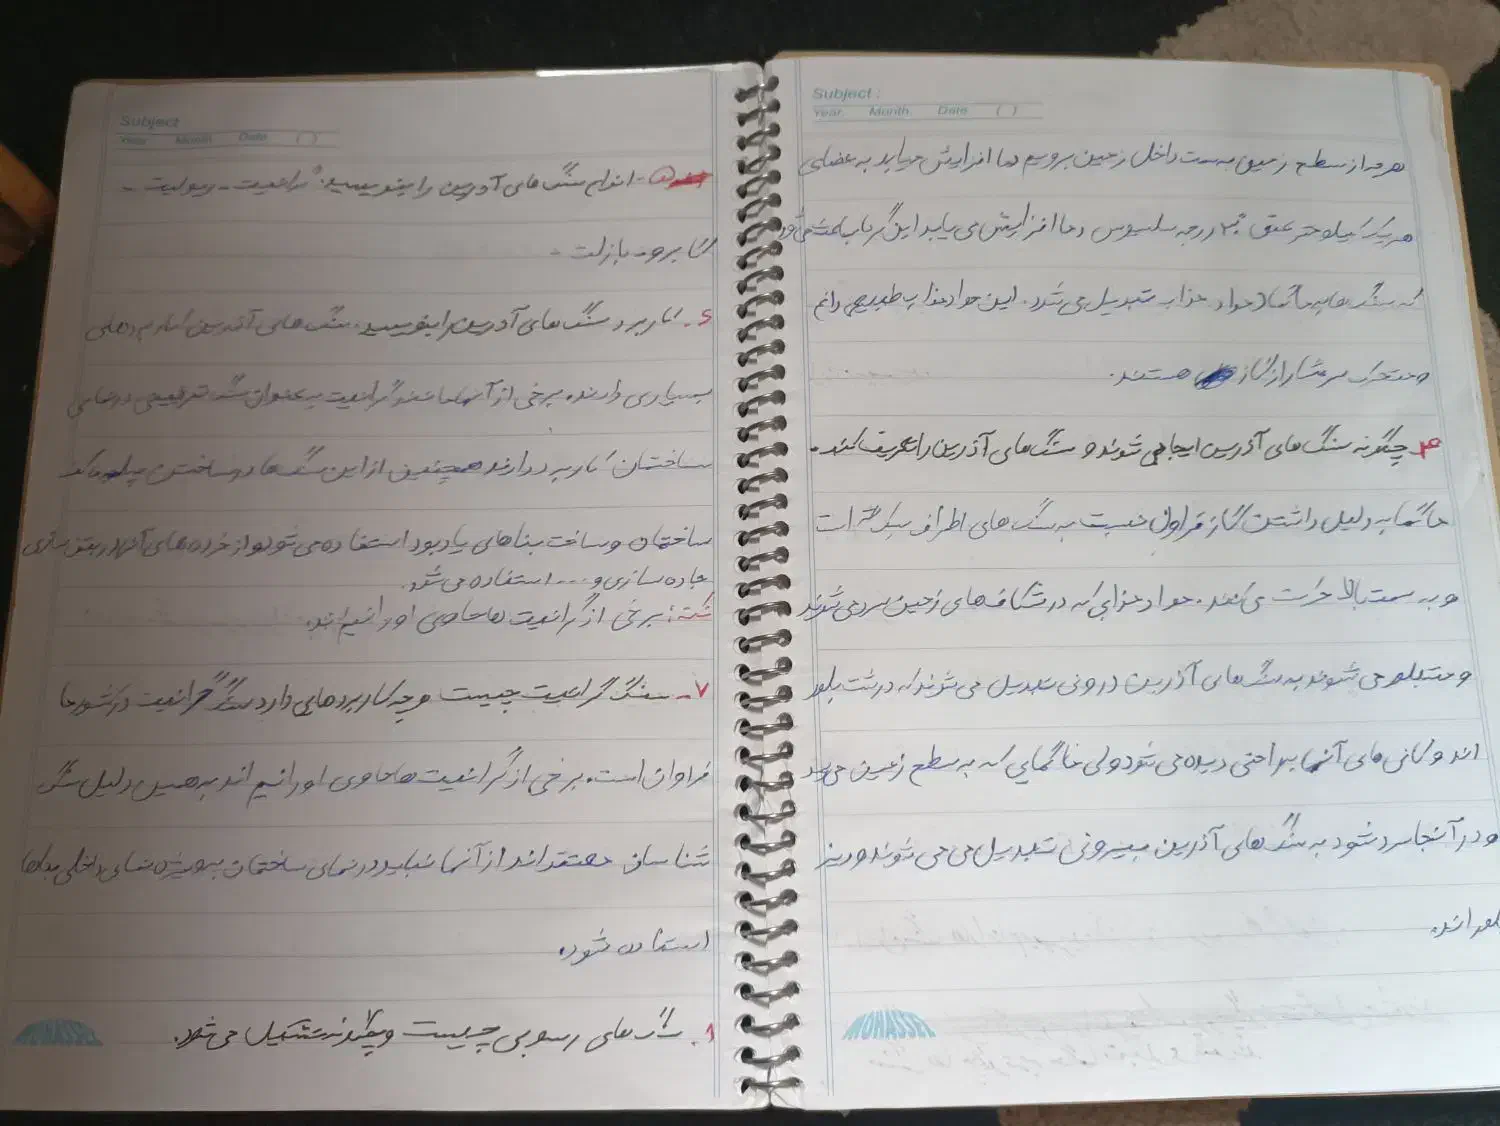 Subject :
Year. Month. Date. ( )
هرچه از سطح زمین به سمت داخل زمین برویم دما افزایش می‌یابد به عضای
هر یک کیلومتر عمق ۳۰ درجه سلسیوس دما افزایش می یابد این گرما باعث می‌شود
که سنگ ها به ماگما (مواد مذاب تبدیل می شود. این مواد مذاب طبیعی دائم
متحرک سرشار از گاز هستند.
۴- چگونه سنگ های آذرین ایجاد می شوند و سنگ های آذرین را تعریف کند.
ماگما به دلیل داشتن گاز فراوان نسبت به سنگ های اطراف سبک تر است
و به سمت بالا حرکت می کند. مواد مذابی که در شکاف های زمین سرد می شوند
و متبلور می شوند به سنگ های آذرین درونی تبدیل می شوند که درشت بلور
اند و کانی های آنها به راحتی دیده می شود ولی ماگمایی که به سطح زمین می رسد
و در آنجا سرد شود به سنگ های آذرین بیرونی تبدیل می می شوند و ریز
بلور اند.
MOHASSEL
Subject
Year. Month. Date. ( )
- انواع سنگ های آذرین را بنویسید: گرانیت - ریولیت -
گابرو - بازلت -
۶- کاربرد سنگ های آذرین را بنویسید. سنگ های آذرین کاربردهای
بسیاری دارند. برخی از آنها مانند گرانیت به عنوان سنگ تزیینی در نمای
ساختمان کاربرد دارند همچنین از این سنگ ها در ساختن پله
ساختمان و ساخت بناهای یادبود استفاده می شود و از خرده های آنها در بتن سازی
جاده سازی و .... استفاده می شود.
نکته: برخی از گرانیت ها حاوی اورانیم اند.
۷- سنگ گرانیت چیست و چه کاربردهایی دارد سنگ گرانیت در کشور ما
فراوان است. برخی از گرانیت ها حاوی اورانیم اند به همین دلیل سنگ
شناسان معتقد اند از آنها نباید در نمای ساختمان به ویژه نمای داخلی بناها
استفاده شود.
۸. سنگ های رسوبی چیست و چگونه تشکیل می شود.
MOHASSEL